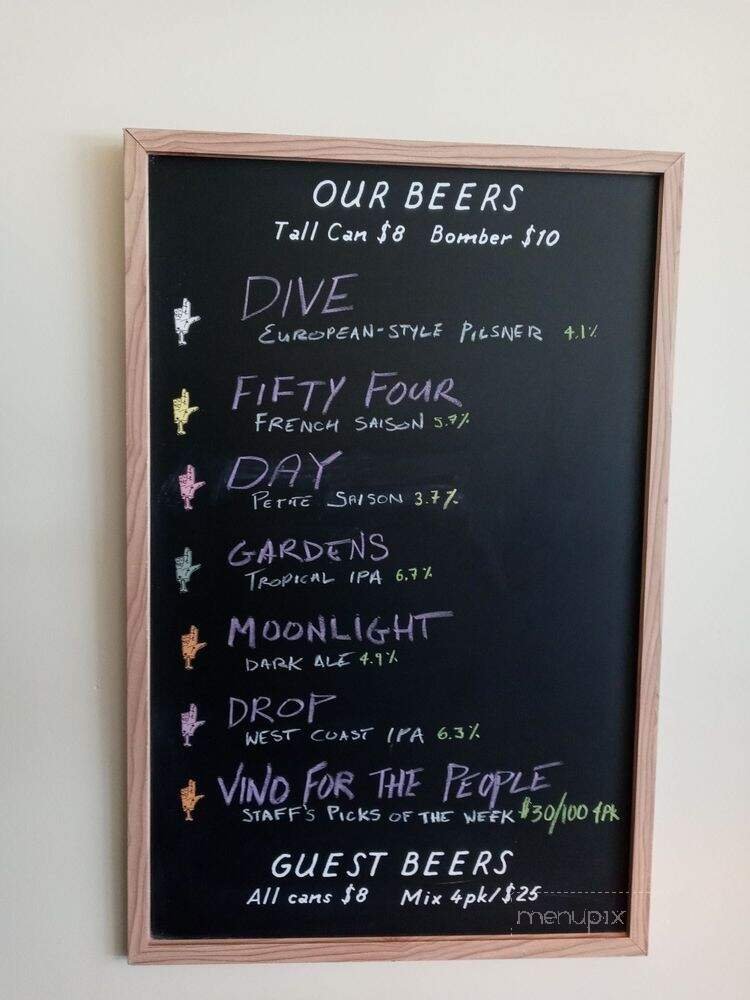 OUR BEERS
Tall Can $8 Bomber $10
DIVE
EUROPEAN-STYLE PILSNER 4.1%
FIFTY FOUR
FRENCH SAISON 5.7%
DAY
PETITE SAISON 3.7%
GARDENS
TROPICAL IPA 6.7%
MOONLIGHT
DARK ALE 4.9%
DROP
WEST COAST IPA 6.3%
VINO FOR THE PEOPLE
STAFF'S PICKS OF THE WEEK $30/100 4PK
GUEST BEERS
All cans $8 Mix 4pk/$25
menupix